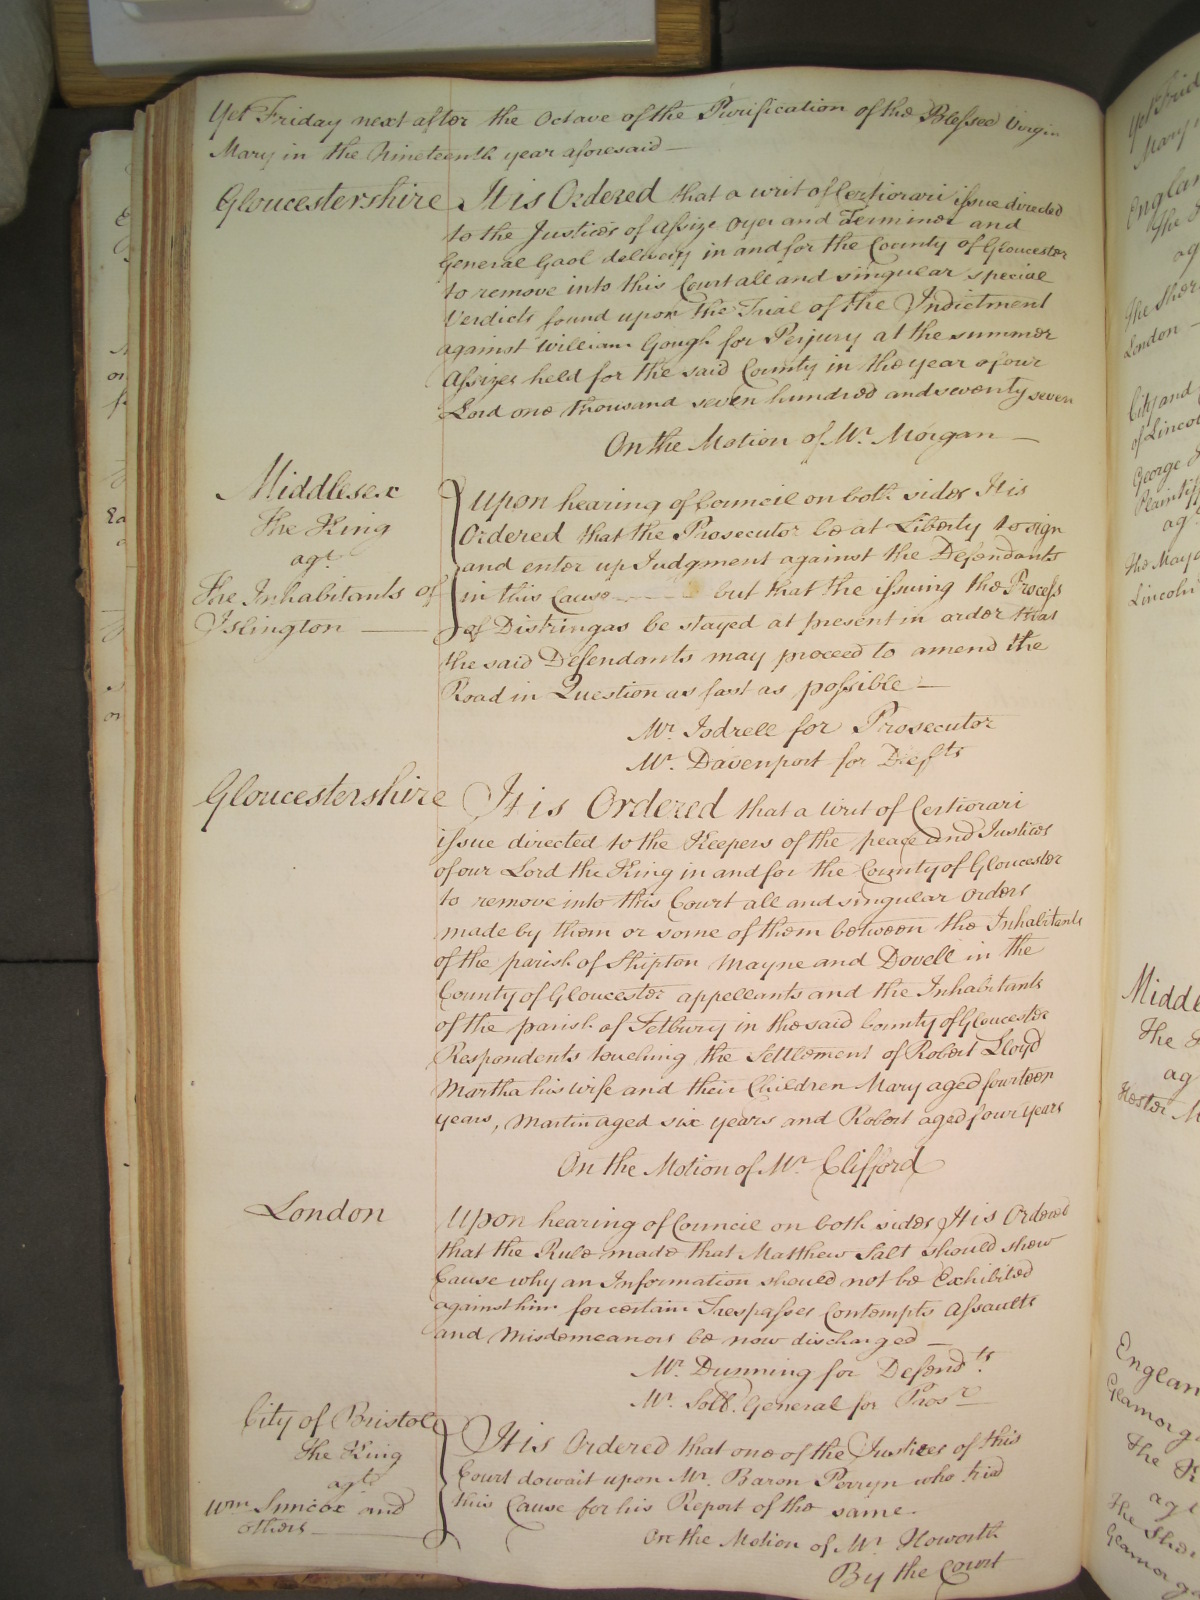 Yet Friday next after the Octave of the Purification of the Blessed Virgin
Mary in the Nineteenth year aforesaid —
Gloucestershire It is Ordered that a writ of Certiorari issue directed
to the Justices of Assize Oyer and Terminer and
General Gaol delivery in and for the County of Gloucester
to remove into this Court all and singular special
Verdicts found upon the Trial of the Indictment
against William Gough for Perjury at the summer
Assizes held for the said County in the year of our
Lord one thousand seven hundred and seventy seven
On the Motion of Mr. Morgan —
Middlesex
The King
agt.
The Inhabitants of
Islington —
Upon hearing of Councic on both sides It is
Ordered that the Prosecutor be at Liberty to sign
and enter up Judgment against the Defendants
in this Cause but that the issuing the Process
of Distringas be stayed at present in order that
the said Defendants may proceed to amend the
Road in Question as fast as possible —
Mr. Jodrell for Prosecutor
Mr. Davenport for Defts
Gloucestershire It is Ordered that a writ of Certiorari
issue directed to the Keepers of the peace and Justices
of our Lord the King in and for the County of Gloucester
to remove into this Court all and singular Orders
made by them or some of them between the Inhabitants
of the parish of Shipton Mayne and Dovell in the
County of Gloucester appellants and the Inhabitants
of the parish of Tetbury in the said County of Gloucester
Respondents touching the Settlement of Robert Lloyd
Martha his wife and their Children Mary aged fourteen
years, Martin aged six years and Robert aged four years
On the Motion of Mr. Clifford
London Upon hearing of Council on both sides It is Ordered
that the Rule made that Matthew Salt should shew
Cause why an Information should not be Exhibited
against him for certain Trespasses Contempts Assaults
and Misdemeanors be now discharged —
Mr. Dunning for Defendts.
Mr. Sollr. General for Prosr
City of Bristol
the King
agt
Wm Simcox and
others —
It is Ordered that one of the Justices of this
Court do wait upon Mr. Baron Perryn who tried
this Cause for his Report of the same.
On the Motion of Mr. Howorth
By the Court